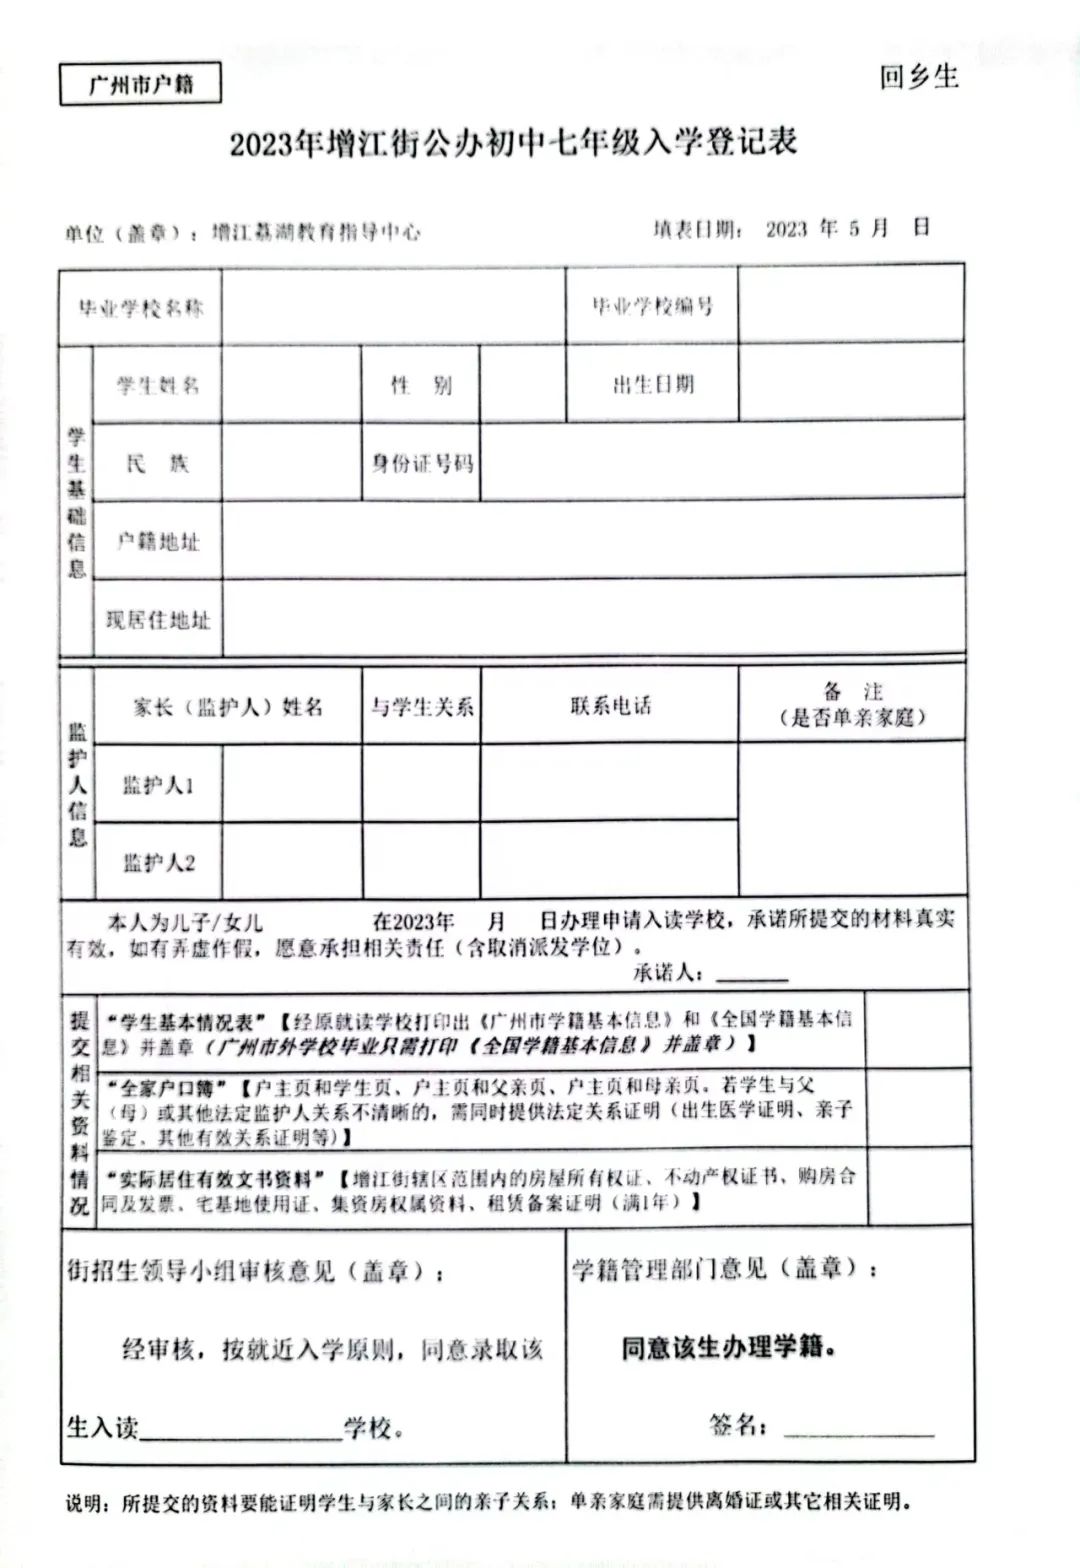 广州市户籍
回乡生
2023年增江街公办初中七年级入学登记表
单位（盖章）：增江荔湖教育指导中心 填表日期： 2023 年 5 月 日
毕业学校名称 毕业学校编号
学生基础信息
学生姓名 性 别 出生日期
民 族 身份证号码
户籍地址
现居住地址
监护人信息
家长（监护人）姓名 与学生关系 联系电话 备 注
（是否单亲家庭）
监护人1
监护人2
本人为儿子/女儿 在2023年 月 日办理申请入读学校，承诺所提交的材料真实
有效，如有弄虚作假，愿意承担相关责任（含取消派发学位）。
承诺人：______
提交相关资料情况
“学生基本情况表”【经原就读学校打印出《广州市学籍基本信息》和《全国学籍基本信
息》并盖章（广州市外学校毕业只需打印《全国学籍基本信息》并盖章）】
“全家户口簿”【户主页和学生页、户主页和父亲页、户主页和母亲页。若学生与父
（母）或其他法定监护人关系不清晰的，需同时提供法定关系证明（出生医学证明、亲子
鉴定、其他有效关系证明等）】
“实际居住有效文书资料”【增江街辖区范围内的房屋所有权证、不动产权证书、购房合
同及发票、宅基地使用证、集资房权属资料、租赁备案证明（满1年）】
街招生领导小组审核意见（盖章）：
经审核，按就近入学原则，同意录取该
生入读________________学校。
学籍管理部门意见（盖章）：
同意该生办理学籍。
签名：____________
说明：所提交的资料要能证明学生与家长之间的亲子关系；单亲家庭需提供离婚证或其它相关证明。